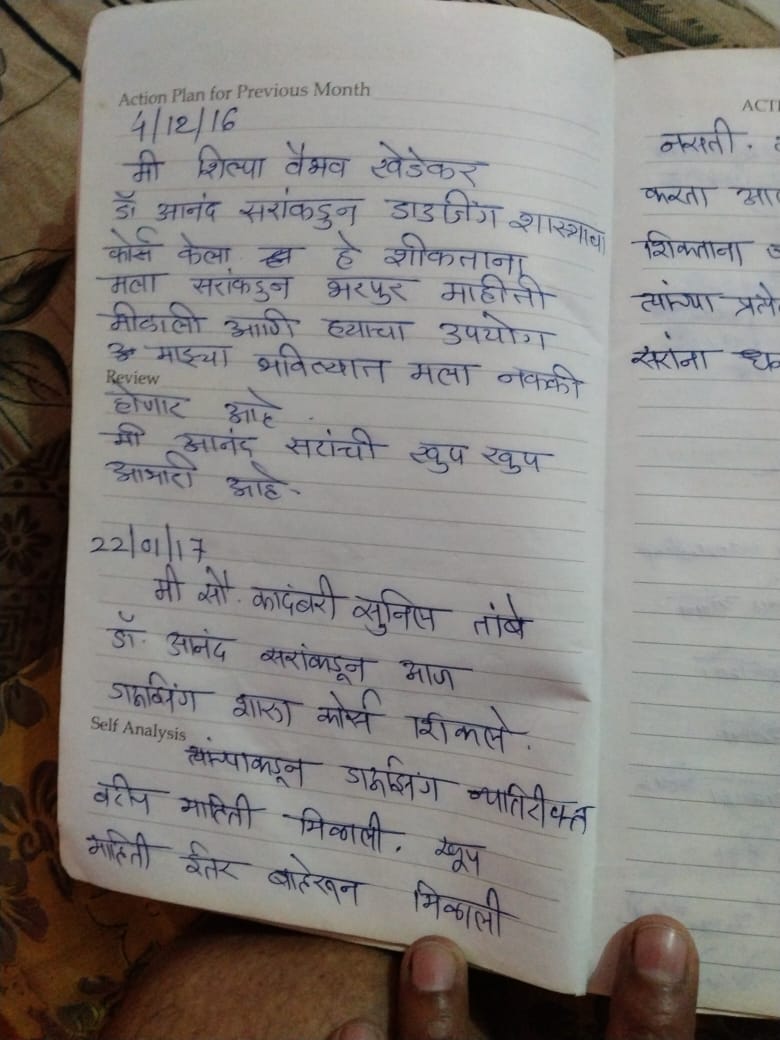 Action Plan for Previous Month
4/12/16
मी शिल्पा वैभव खेडेकर
डॉ आनंद सरांकडुन डाउजिंग शास्त्राचा
कोर्स केला हे शीकताना
मला सरांकडुन भरपुर माहीती
मीळाली आणि ह्याचा उपयोग
माझ्या भवित्यात मला नक्की
Review
होणार आहे.
मी आनंद सरांची खुप खुप
आभारी आहे.
22/01/17
मी सौ. कादंबरी सुनिल तांबे
डॉ. आनंद सरांकडून आज
डाऊझिंग शास्त्र कोर्स शिकले.
Self Analysis
त्यांच्याकडून डाऊझिंग व्यतिरीक्त
बरीच माहिती मिळाली. खूप
माहिती ईतर मिळाली
ACTI
नसती.
करता
शिकताना
त्यांच्या
सरांना